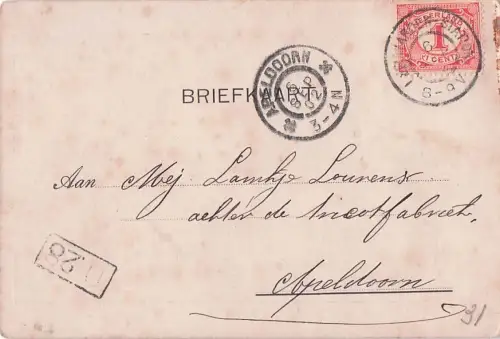 NEDERLAND
1
CENT
8-9V
APELDOORN
SEP
3-4N
BRIEFKAART.
Aan Mej Lamkje Lourens
achter de tricotfabriek,
Apeldoorn
28
31